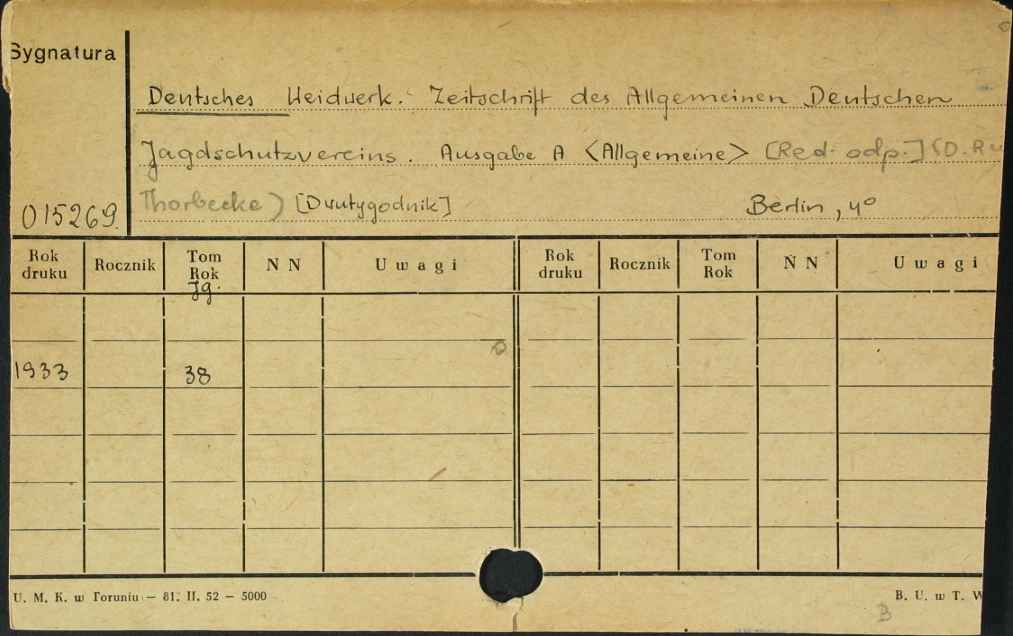 Sygnatura
Deutsches Weidwerk. Zeitschrift des Allgemeinen Deutschen
Jagdschutzvereins. Ausgabe A <Allgemeine> [Red. odp.] (D. Ru
Thorbecke) [Dwutygodnik] Berlin, 4°
015269.
Rok druku Rocznik Tom Rok N N Uwagi Rok druku Rocznik Tom Rok N N Uwagi
Jg.
1933 38
U. M. K. w Toruniu — 81. II. 52 — 5000 B. U. w T. W
B